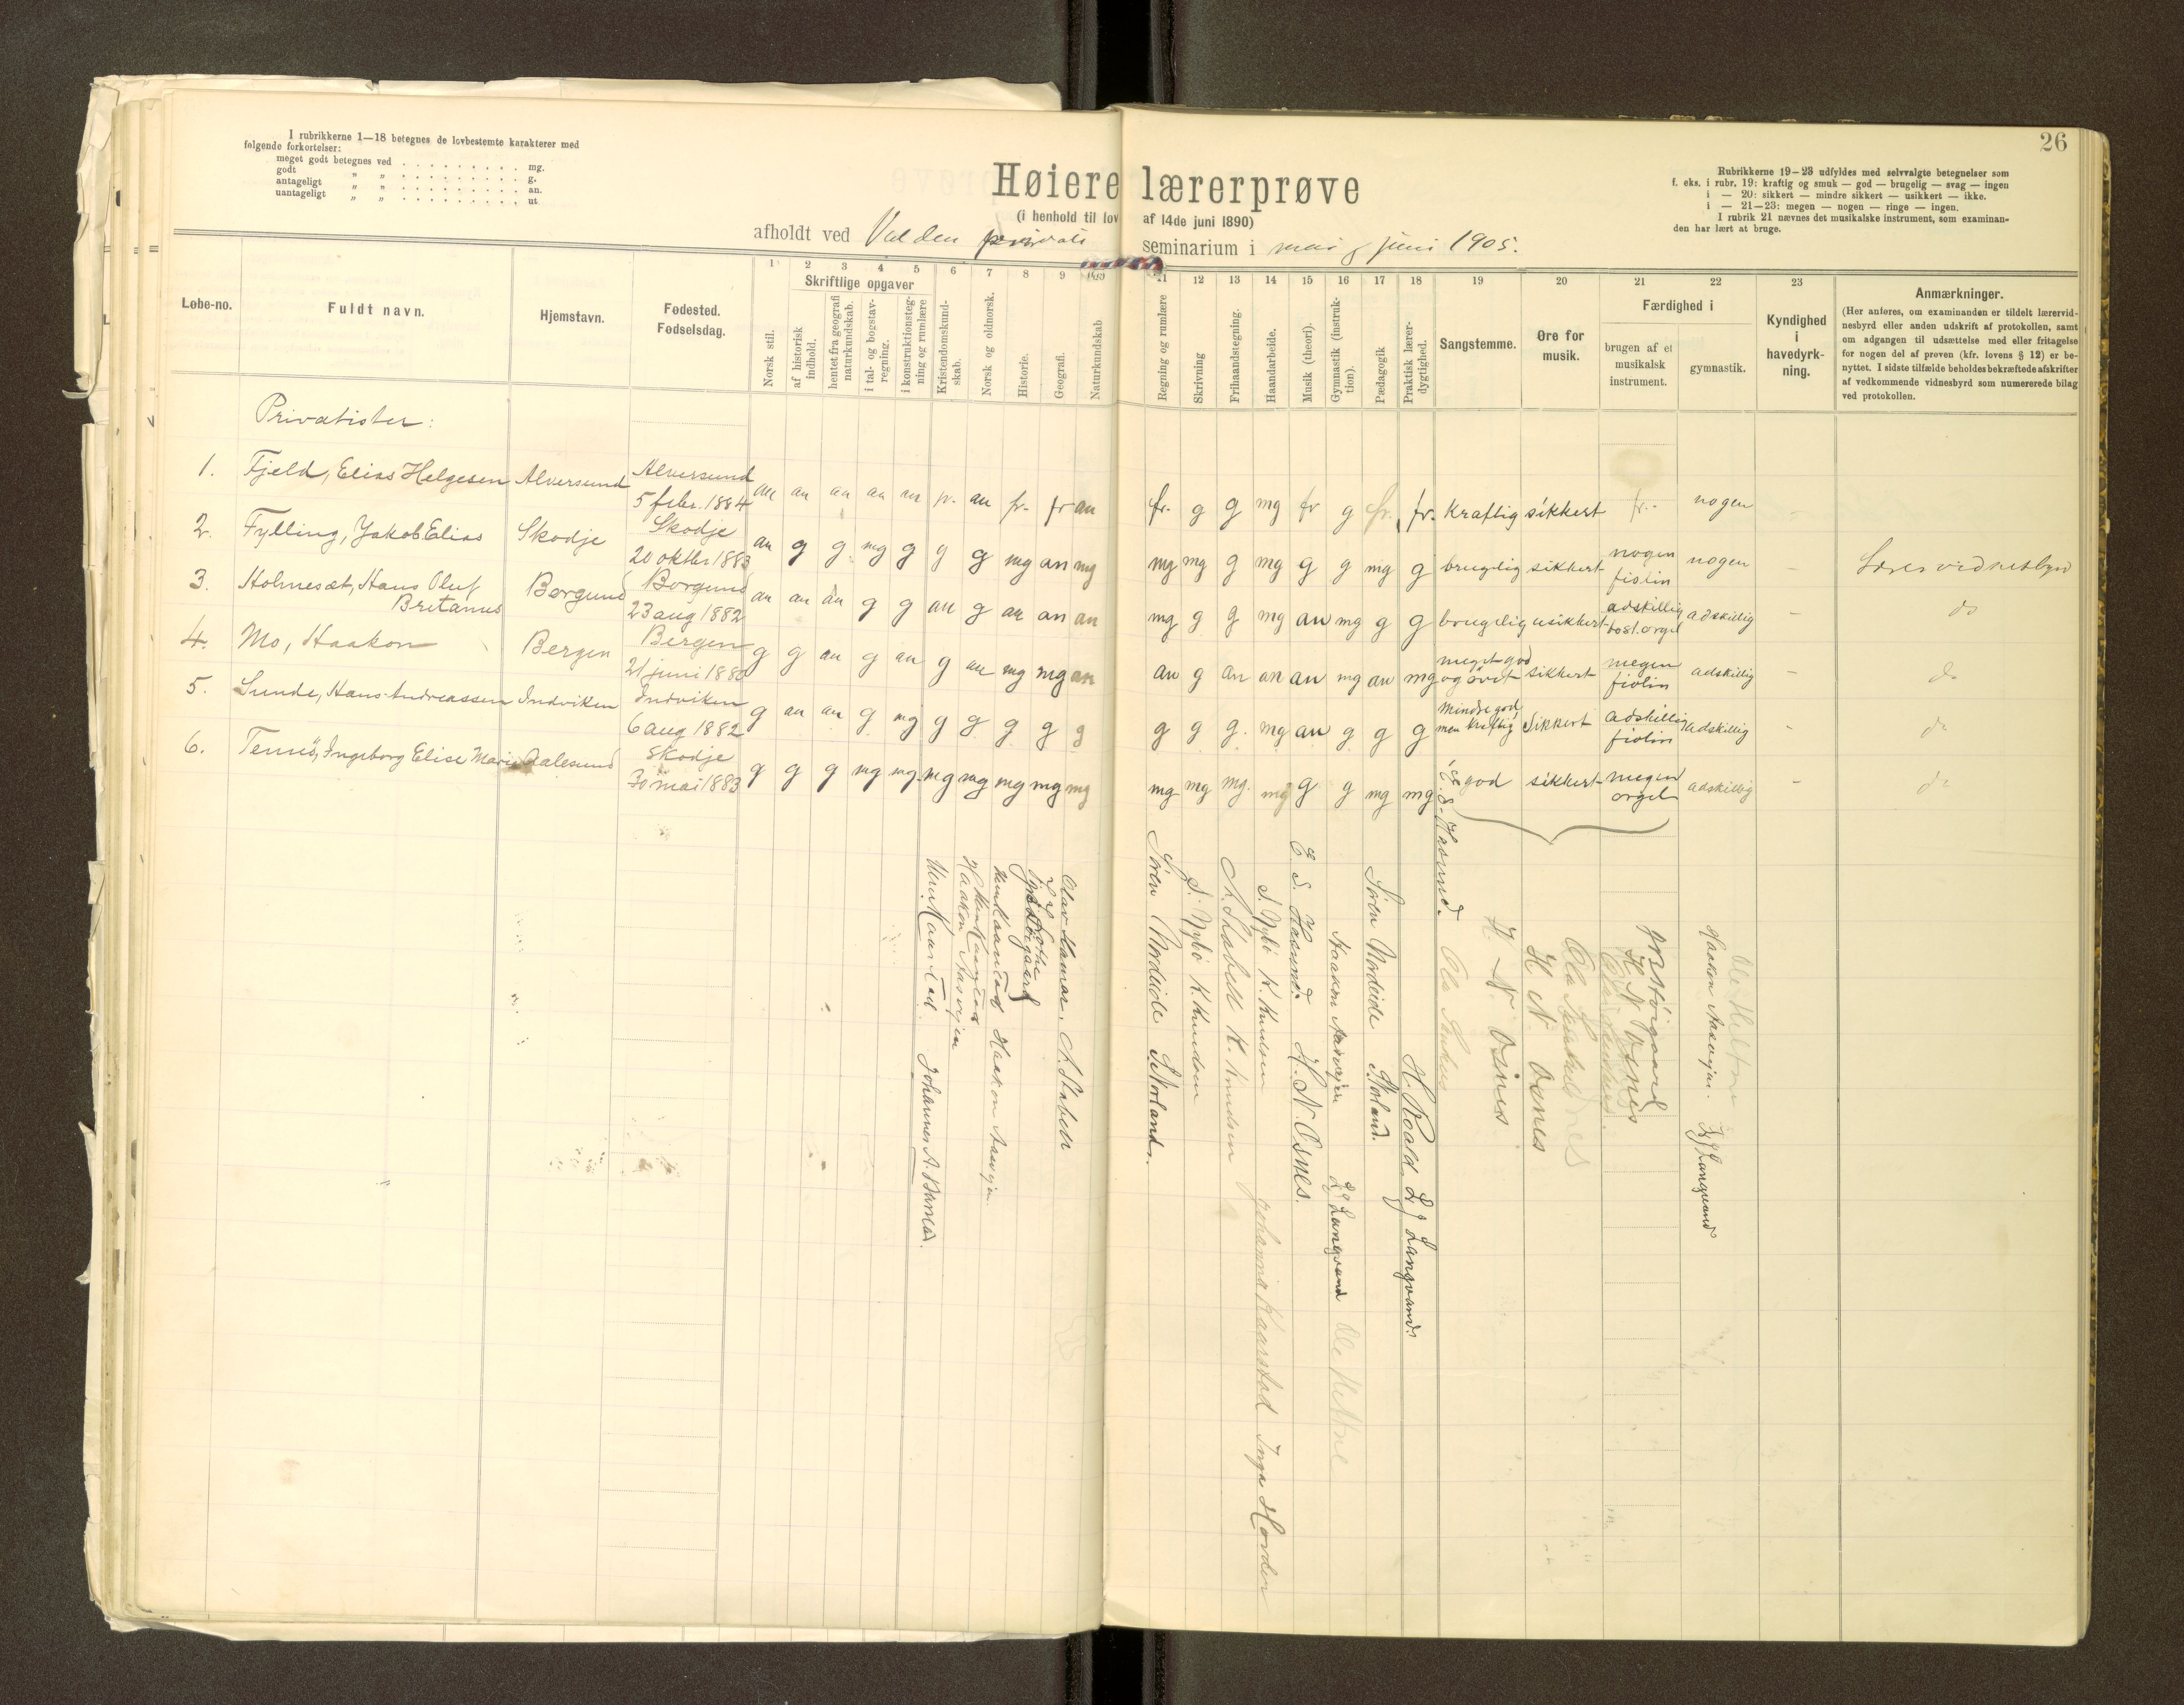 I rubrikkerne 1—18 betegnes de lovbestemte karakterer med
følgende forkortelser:
meget godt betegnes ved . . . . . . . . . mg.
godt „ „ . . . . . . . . . g.
antageligt „ „ . . . . . . . . . an.
uantageligt „ „ . . . . . . . . . ut
26
Høiere lærerprøve
(i henhold til lov af 14de juni 1890)
afholdt ved Volden private seminarium i mai & juni 1905.
Rubrikkerne 19—23 udfyldes med selvvalgte betegnelser som
f. eks. i rubr. 19: kraftig og smuk — god — brugelig — svag — ingen
i — 20: sikkert — mindre sikkert — usikkert — ikke.
i — 21—23: megen — nogen — ringe — ingen.
I rubrik 21 nævnes det musikalske instrument, som examinan-
den har lært at bruge.
Løbe-no.
Fuldt navn.
Hjemstavn.
Fødested.
Fødselsdag.
1 2 3 4 5 6 7 8 9 11 12 13 14 15 16 17 18 19 20 21 22 23
Skriftlige opgaver
Norsk stil.
af historisk
indhold.
hentet fra geografi
naturkundskab.
i tal- og bogstav-
regning.
i konstruktionsteg-
ning og rumlære
Kristendomskund-
skab.
Norsk og oldnorsk.
Historie.
Geografi.
Naturkundskab
Regning og rumlære
Skrivning
Frihaandstegning.
Haandarbeide.
Musik (theori).
Gymnastik (instruk-
tion).
Pædagogik
Praktisk lærer-
dygtighed.
Sangstemme.
Øre for
musik.
Færdighed i
brugen af et
musikalsk
instrument.
gymnastik.
Kyndighed
i
havedyrk-
ning.
Anmærkninger.
(Her anføres, om examinanden er tildelt lærervid-
nesbyrd eller anden udskrift af protokollen, samt
om adgangen til udsættelse med eller fritagelse
for nogen del af prøven (kfr. lovens § 12) er be-
nyttet. I sidste tilfælde beholdes bekræftede afskrifter
af vedkommende vidnesbyrd som numererede bilag
ved protokollen.
Privatister:
1. Fjeld, Elias Helgesen Alversund Alversund
5 febr. 1884 an an an an an fr. an fr. fr an fr. g g mg fr g fr. fr. kraftig sikkert fr.- nogen
2. Fylling, Jakob Elias Skodje Skodje
20 oktbr 1883 an g g mg g g g mg an mg mg mg g mg g g mg g brugelig sikkert nogen
fiolin nogen – Lærervidnesbyrd
3. Holmesæt, Hans Oluf
Britanus Borgund Borgund
23 aug 1882 an an an g g an g an an an mg g g mg an mg g g brugelig usikkert adskillig
post.orgel adskillig – do
4. Mo, Haakon Bergen Bergen
21 juni 1880 g g an g an g an mg mg an an g an an an mg an mg meget god
og øvet sikkert megen
fiolin adskillig – do
5. Sunde, Hans Andreassen Indviken Indviken
6 aug 1882 g an an g mg g g g g g g g g. mg an g g g mindre god,
men kraftig sikkert adskillig
fiolin adskillig do
6. Tennö, Ingeborg Elise Marie Aalesund Skodje
30 mai 1883 g g g mg mg mg mg mg mg mg mg mg mg. mg g g mg mg god sikkert megen
orgel adskillig – do
Johannes A. Barstad.
Haakon Aasvejen
Haakon Aasvejen
Olav Hamar. A. Stabell
Sören Nordeide S. Norland.
S. Nybö K. Knudsen
A. Stabell K. Knudsen
S. Nybö K. Knudsen Johanna Kaarstad Inga Hovden
E. S. Hasund. H. N. Osnes.
Haakon Aasvejen L J Langvand Ole Heltne
Sören Nordeide Norland.
H. Roald L J Langvand.
E. S. Hasund.
H. N. Osnes
H N Osnes
H N Osnes
Haakon Aasvejen. L J Langvand
Ole Heltne